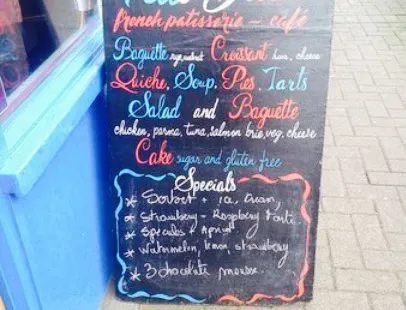 french patisserie - café
Baguette Croissant ham, cheese
Quiche, Soup, Pies, Tarts
Salad and Baguette
chicken, parma, tuna, salmon brie, veg, cheese
Cake sugar and gluten free
Specials
* Sorbet + ice cream,
* Strawberry - Raspberry Tarte
* Speculos + Apricot
* Watermelon, lemon, strawberry
* 3 chocolate mousse